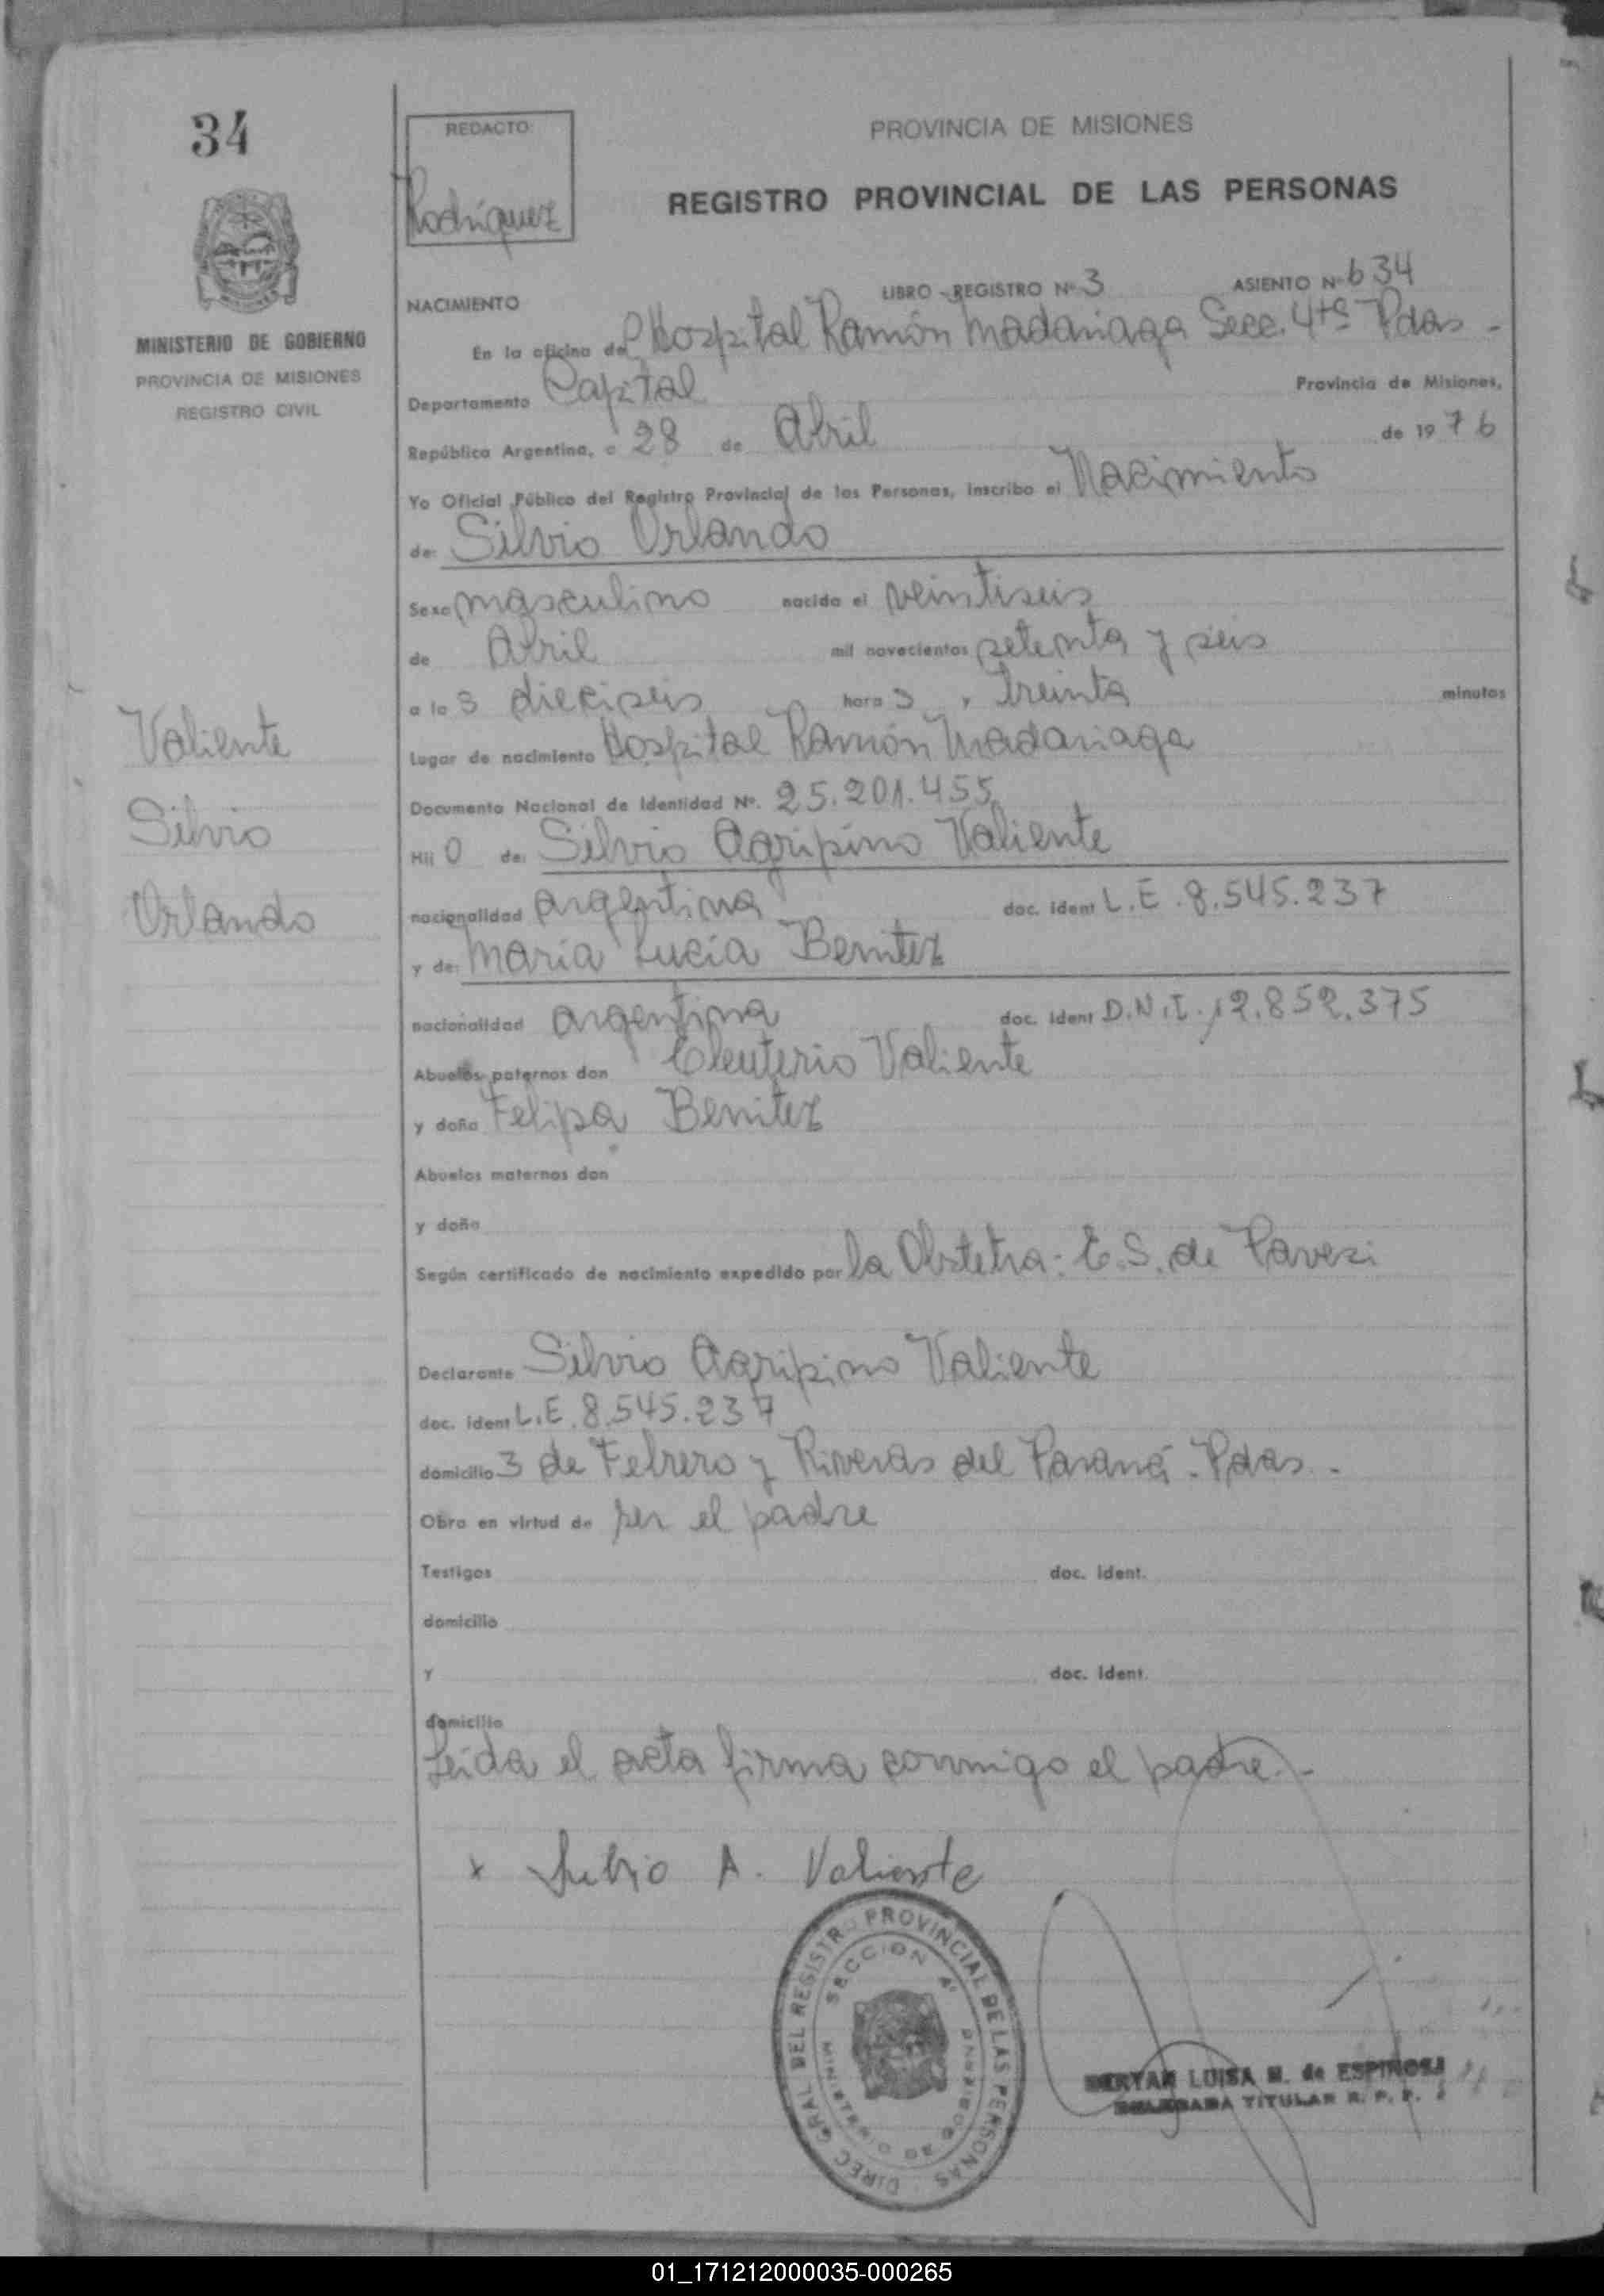 34
REDACTO:
Rodríguez
PROVINCIA DE MISIONES
REGISTRO PROVINCIAL DE LAS PERSONAS
MINISTERIO DE GOBIERNO
PROVINCIA DE MISIONES
REGISTRO CIVIL
NACIMIENTO
LIBRO - REGISTRO Nº 3
ASIENTO Nº 634
En la oficina del Hospital Ramón Madariaga Secc. 4ta Pdas -
Departamento Capital Provincia de Misiones,
República Argentina, a 28 de Abril de 1976
Yo Oficial Público del Registro Provincial de las Personas, inscribo el Nacimiento
de: Silvio Orlando
Sexo masculino nacido el veintiseis
de Abril mil novecientos setenta y seis
a las dieciseis horas, treinta minutos
Lugar de nacimiento Hospital Ramón Madariaga
Documento Nacional de Identidad Nº. 25.201.455
Hijo de: Silvio Agripino Valiente
nacionalidad argentina doc. ident L.E. 8.545.237
y de: María Lucía Benitez
nacionalidad argentina doc. ident D.N.I. 12.852.375
Abuelos paternos don Eleuterio Valiente
y doña Felipa Benitez
Abuelos maternos don
y doña
Según certificado de nacimiento expedido por la Obstetra: E.S. de Pavesi
Declarante Silvio Agripino Valiente
doc. ident L.E. 8.545.237
domicilio 3 de Febrero y Riveras del Paraná - Pdas -
Obra en virtud de ser el padre
Testigos doc. ident.
domicilio
y doc. ident.
domicilio
Leida el acta firma conmigo el padre.-
Valiente
Silvio
Orlando
x Silvio A. Valiente
DIREC. GRAL DEL REGISTRO PROVINCIAL DE LAS PERSONAS
SECCION 4º
MINISTERIO DE GOBIERNO
LUISA M. de ESPINOSA
DELEGADA TITULAR R. P. P.
01_171212000035-000265